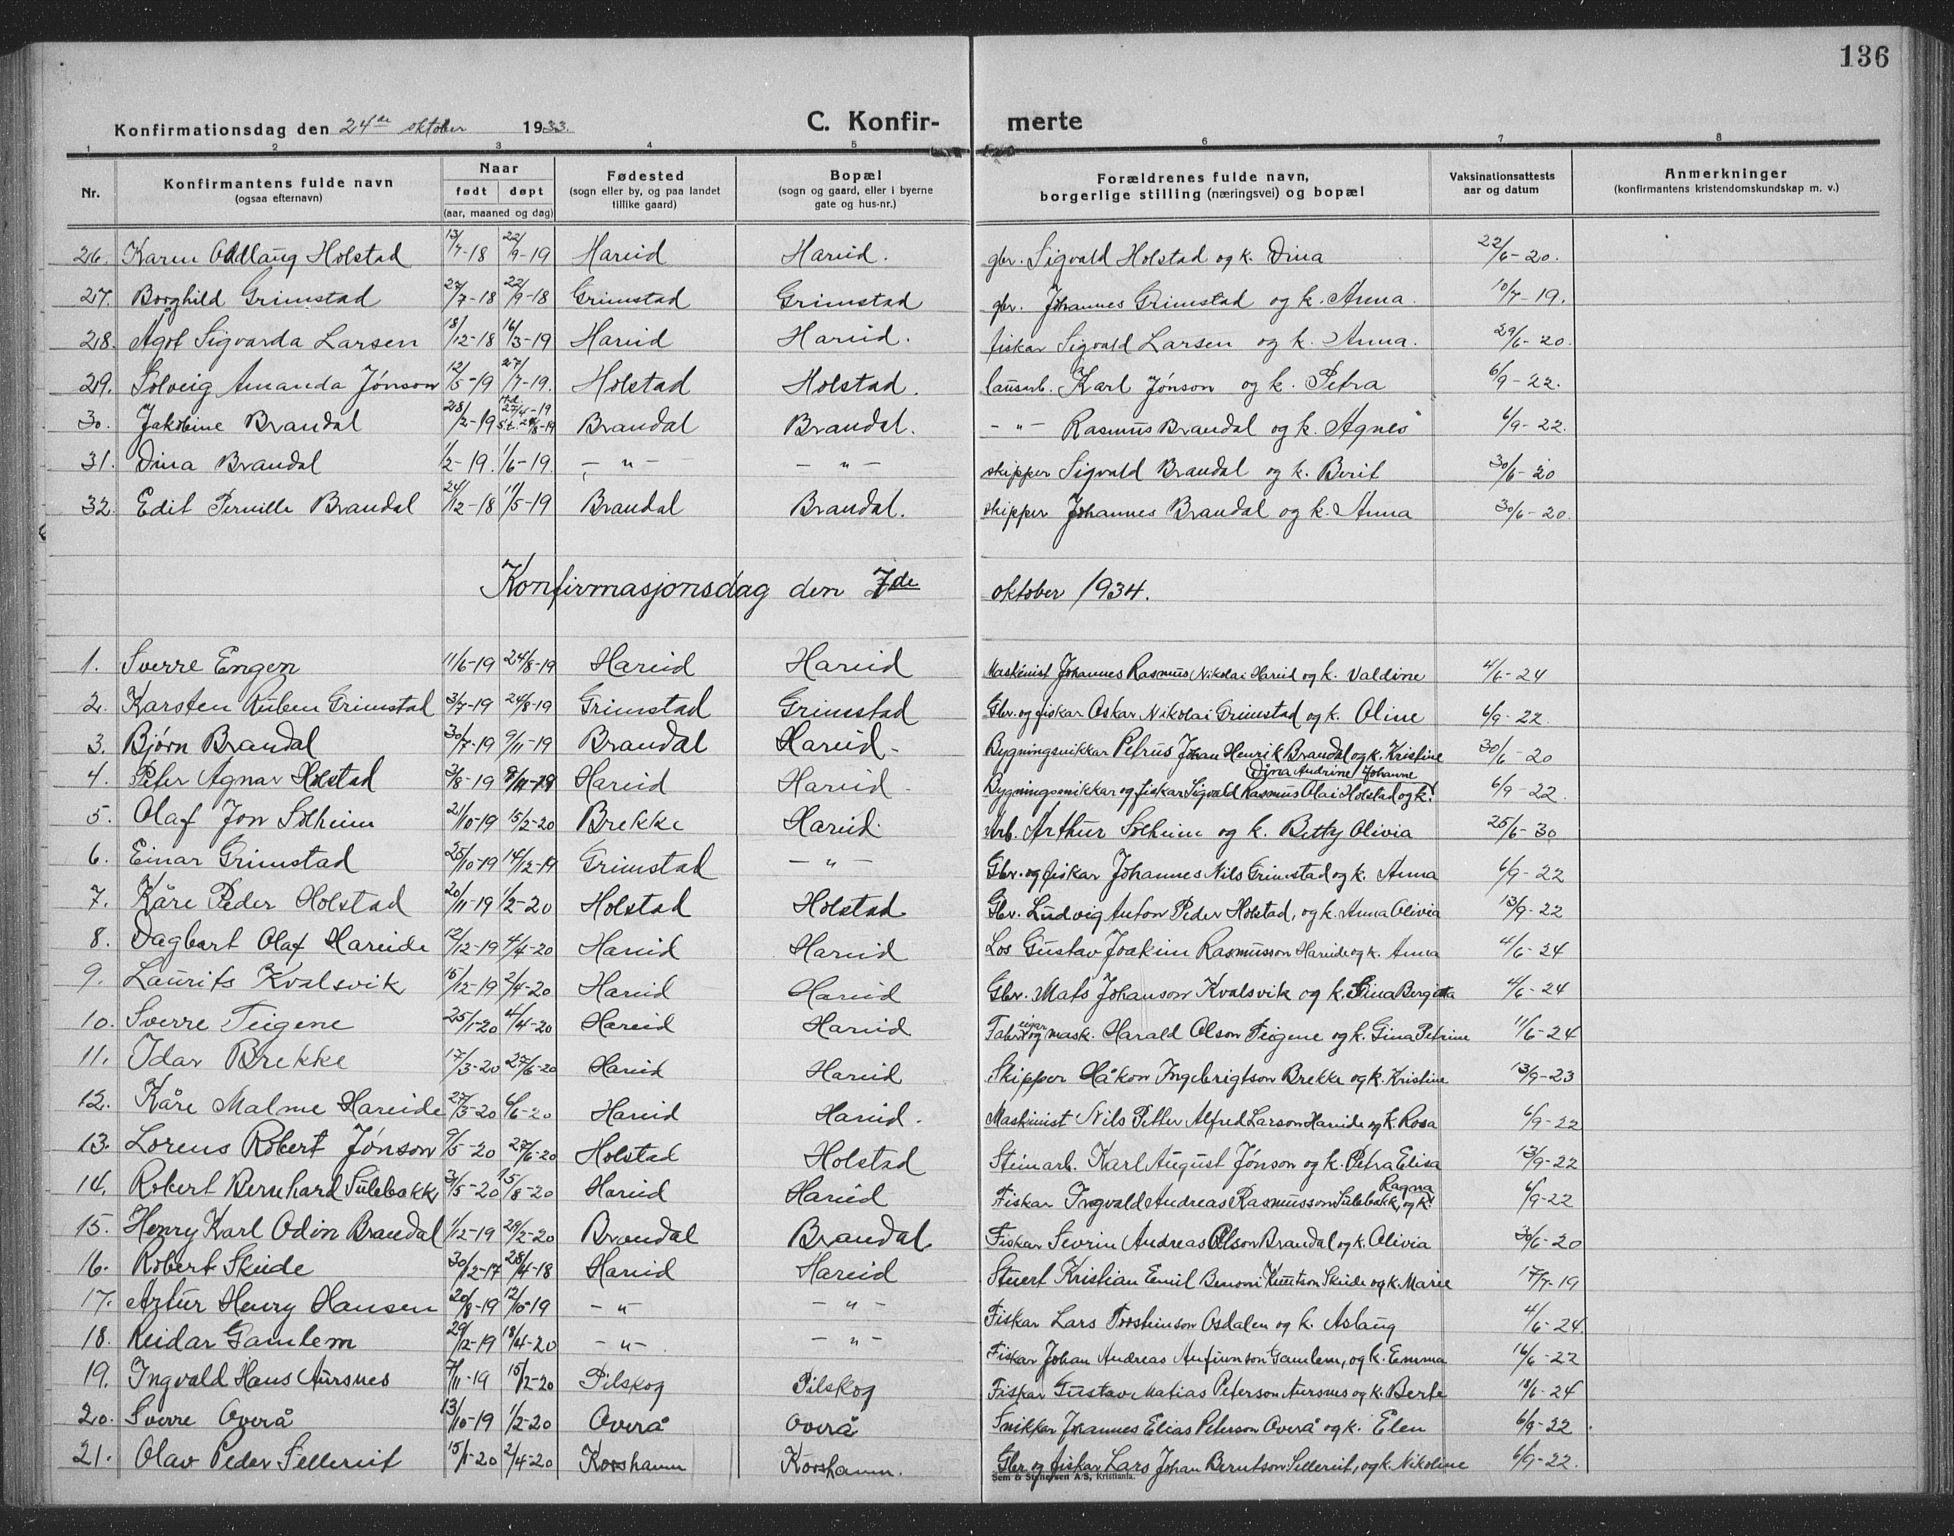 136
Konfirmationsdag den 24de oktober 1933. C. Konfir- merte
1 2 3 4 5 6 7 8
Nr. Konfirmantens fulde navn (ogsaa efternavn) Naar født døpt (aar, maaned og dag) Fødested (sogn eller by, og paa landet tillike gaard) Bopæl (sogn og gaard, eller i byerne gate og hus-nr.) Forældrenes fulde navn, borgerlige stilling (næringsvei) og bopæl Vaksinationsattests aar og datum Anmerkninger (konfirmantens kristendomskundskap m. v.)
26. Karen Oddlaug Holstad 13/7-18 22/9-19 Hareid Hareid. gbr. Sigvald Holstad og k. Dina 22/6-20.
27. Borghild Grimstad 27/7-18 22/9-18 Grimstad Grimstad gbr. Johannes Grimstad og k. Anna. 10/7-19.
28. Ågot Sigvarda Larsen 18/12-18 16/3-19 Hareid Hareid. fiskar Sigvald Larsen og k. Anna. 29/6-20.
29. Solveig Amanda Jónson 12/5-19 27/7-19. Holstad Holstad. lausarb. Karl Jónson og k. Petra 6/9-22.
30. Jakobine Brandal 28/2-19 Hd. 27/4-19 Brandal Brandal. -"- Rasmus Brandal og k. Agnes 6/9-22.
31. Dina Brandal 1/2-19. 1/6-19. -"- -"- skipper Sigvald Brandal og k. Berit 30/6-20
32. Edit Pernille Brandal 24/12-18 11/5-19 Brandal Brandal. skipper Johannes Brandal og k. Anna 30/6-20.
Konfirmasjonsdag den 7de oktober 1934.
1. Sverre Engen 11/6-19 24/8-19 Hareid Hareid Maskinist Johannes Rasmus Nikolai Hareid og k. Valdine 4/6-24
2. Karsten Ruben Grimstad 3/7-19 24/8-19 Grimstad Grimstad Gbr. og fiskar Oskar Nikolai Grimstad og k. Oline 6/9-22.
3. Bjørn Brandal 30/7-19 9/11-19 Brandal Hareid - Bygningsnikkar Petrus Johan Henrik Brandal og k. Kristine 30/6-20
4. Peter Agnar Holstad 3/8-19 9/11-19 Hareid Hareid - Bygningssnikkar og fiskar Sigvald Rasmus Olai Holstad og k. Dina Andrine Johanne 6/9-22.
5. Olaf Jon Solheim 21/10-19 15/2-20 Brekke Hareid Arb. Arthur Solheim og k. Betty Olivia 25/6-30
6. Einar Grimstad 25/10-19 14/12-19 Grimstad -"- Gbr. og fiskar Johannes Nils Grimstad og k. Anna 6/9-22
7. Kåre Peder Holstad 20/11-19 1/2-20 Holstad Holstad Gbr. Ludvig Anton Peder Holstad, og k. Anna Olivia 13/9-22
8. Dagbart Olaf Hareide 12/12-19 4/4-20 Hareid Hareid Los Gustav Joakim Rasmusson Hareide og k. Anna 4/6-24
9. Laurits Kvalsvik 15/12-19 2/4-20 Hareid Hareid Gbr. Mats Johanson Kvalsvik og k. Gina Bergitta 4/6-24
10. Sverre Teigene 25/1-20 4/4-20 Hareid Hareid Fabr. eigar og mask. Harald Olson Teigene og k. Gina Petrine 11/6-24
11. Idar Brekke 17/3-20 27/6-20 Hareid Hareid Skipper Håkon Ingebrigtson Brekke og k. Kristine 13/9-23
12. Kåre Malme Hareide 27/3-20 6/6-20 Hareid Hareid. Maskinist Nils Petter Alfred Larson Hareide og k. Rosa 6/9-22
13. Lorens Robert Jónson 9/5-20 27/6-20 Holstad Holstad Steinarb. Karl August Jónson og k. Petra Elisa 13/9-22
14. Robert Bernhard Sulebakk 31/5-20 15/8-20 Hareid Hareid Fiskar Ingvald Andreas Rasmusson Sulebakk, og k. Ragna 6/9-22
15. Henry Karl Odin Brandal 1/12-19 29/2-20 Brandal Brandal Fiskar Severin Andreas Olson Brandal og k. Olivia 30/6-20
16. Robert Skeide 30/12-17 28/4-18 Hareid Hareid Stuert Kristian Emil Benoni Knutson Skeide og k. Marie 17/7-19
17. Artur Henry Hansen 20/8-19 12/10-19 -"- -"- Fiskar Lars Torsteinson Osdalen og k. Aslaug 4/6-24.
18. Reidar Gamlem 29/12-19 18/4-20 -"- -"- Fiskar Johan Andreas Anfinnson Gamlem, og k. Emma 16/6-22
19. Ingvald Hans Aursnes 7/11-19 15/2-20 Pilskog Pilskog Fiskar Gustav Matias Peterson Aursnes og k. Berte 18/6-24
20. Sverre Overå 13/10-19 1/2-20 Overå Overå Snikkar Johannes Elias Peterson Overå og k. Elen 6/9-22
21. Olav Peder Sellereit 15/1-20 2/4-20 Korshamn Korshamn. Gbr. og fiskar Lars Johan Berntson Sellereit, og k. Nikoline 6/9-22.
Sem & Stenersen A/S, Kristiania.